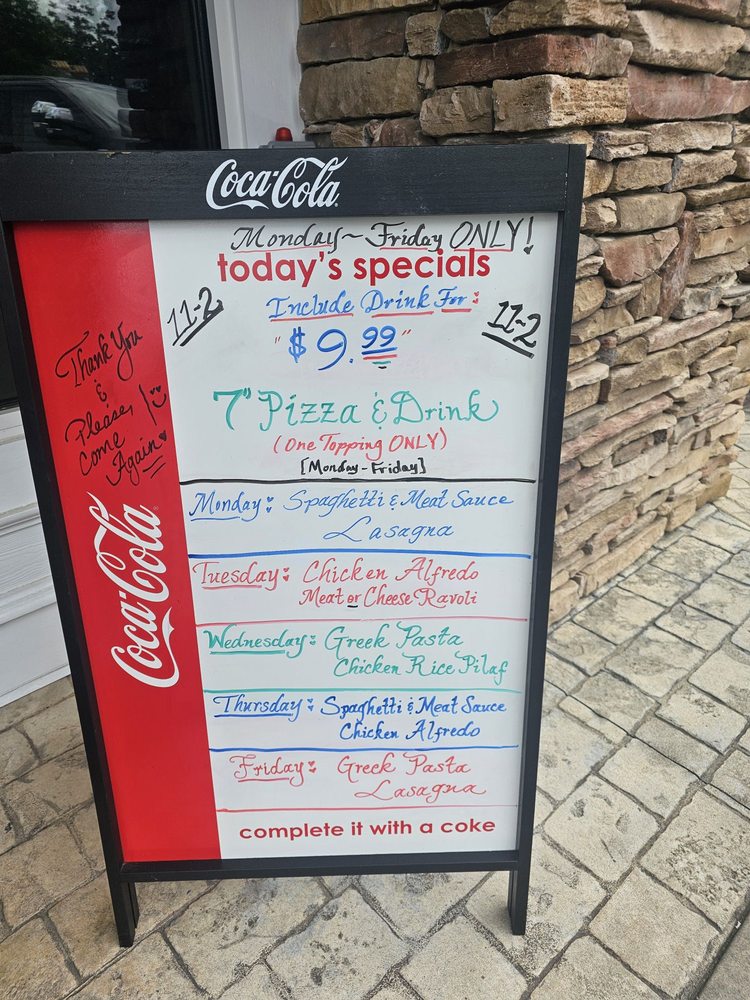 Coca-Cola
Monday~Friday ONLY!
today's specials
Include Drink For:
11-2
"$9.99"
11-2
7" Pizza & Drink
(One Topping ONLY)
[Monday-Friday]
Monday: Spaghetti & Meat Sauce
Lasagna
Tuesday: Chicken Alfredo
Meat or Cheese Ravoli
Wednesday: Greek Pasta
Chicken Rice Pilaf
Thursday: Spaghetti & Meat Sauce
Chicken Alfredo
Friday: Greek Pasta
Lasagna
complete it with a coke
Thank You
&
Please,
Come
Again!
Coca-Cola